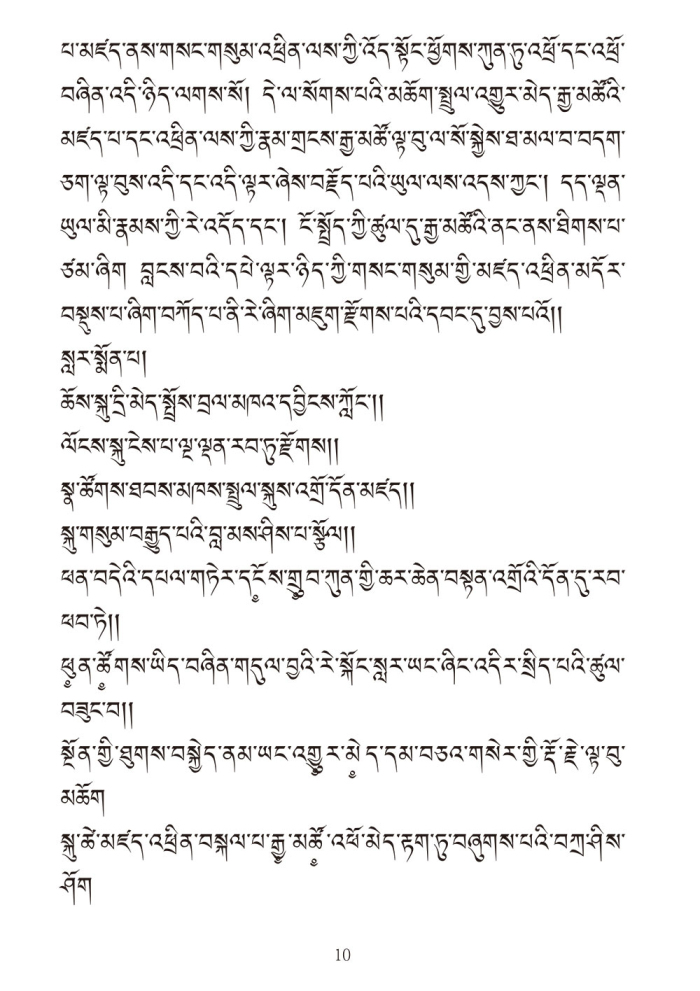 པ་མཛད་ནས་གསང་གསུམ་འཕྲིན་ལས་ཀྱི་འོད་སྟོང་ཕྱོགས་ཀུན་ཏུ་འཕྲོ་དང་འཕྲོ་
བཞིན་འདི་ཉིད་ལགས་སོ། དེ་ལ་སོགས་པའི་མཆོག་སྤྲུལ་འགྱུར་མེད་རྒྱ་མཚོའི་
མཛད་པ་དང་འཕྲིན་ལས་ཀྱི་རྣམ་གྲངས་རྒྱ་མཚོ་ལྟ་བུ་ལ་སོ་སྐྱེས་ཐ་མལ་བ་བདག་
ཅག་ལྟ་བུས་འདི་དང་འདི་ལྟར་ཞེས་བརྗོད་པའི་ཡུལ་ལས་འདས་ཀྱང་། དད་ལྡན་
ཡུལ་མི་རྣམས་ཀྱི་རེ་འདོད་དང་། ངོ་སྤྲོད་ཀྱི་ཚུལ་དུ་རྒྱ་མཚོའི་ནང་ནས་ཐིགས་པ་
ཙམ་ཞིག བླངས་བའི་དཔེ་ལྟར་ཉིད་ཀྱི་གསང་གསུམ་གྱི་མཛད་འཕྲིན་མདོར་
བསྡུས་པ་ཞིག་བཀོད་པ་ནི་རེ་ཞིག་མཇུག་རྫོགས་པའི་དབང་དུ་བྱས་པའོ།།
སླར་སྨོན་པ།
ཆོས་སྐུ་དྲི་མེད་སྤྲོས་བྲལ་མཁའ་དབྱིངས་ཀློང་།།
ལོངས་སྐུ་ངེས་པ་ལྔ་ལྡན་རབ་ཏུ་རྫོགས།།
སྣ་ཚོགས་ཐབས་མཁས་སྤྲུལ་སྐུས་འགྲོ་དོན་མཛད།།
སྐུ་གསུམ་བརྒྱུད་པའི་བླ་མས་ཤིས་པ་སྩོལ།།
ཕན་བདེའི་དཔལ་གཏེར་དངོ༵ས་གྲུབ་ཀུན་གྱི་ཆར་ཆེན་བསྟན་འགྲོའི་དོན་དུ་རབ་
ཕབ་ཏེ།།
ཕུ༵ན་ཚོ༵གས་ཡིད་བཞིན་གདུལ་བྱའི་རེ་སྐོང་སླར་ཡང་ཞིང་འདིར་སྲིད་པའི་ཚུལ་
བཟུང་བ།།
སྔོན་གྱི་ཐུགས་བསྐྱེད་ནམ་ཡང་འགྱུ༵ར་མེ༵ད་དམ་བཅའ་གསེར་གྱི་རྡོ་རྗེ་ལྟ་བུ་
མཆོག
སྐུ་ཚེ་མཛད་འཕྲིན་བསྐལ་པ་རྒྱ༵་མཚོ༵་འཕོ་མེད་རྟག་ཏུ་བཞུགས་པའི་བཀྲ་ཤིས་
ཤོག
10